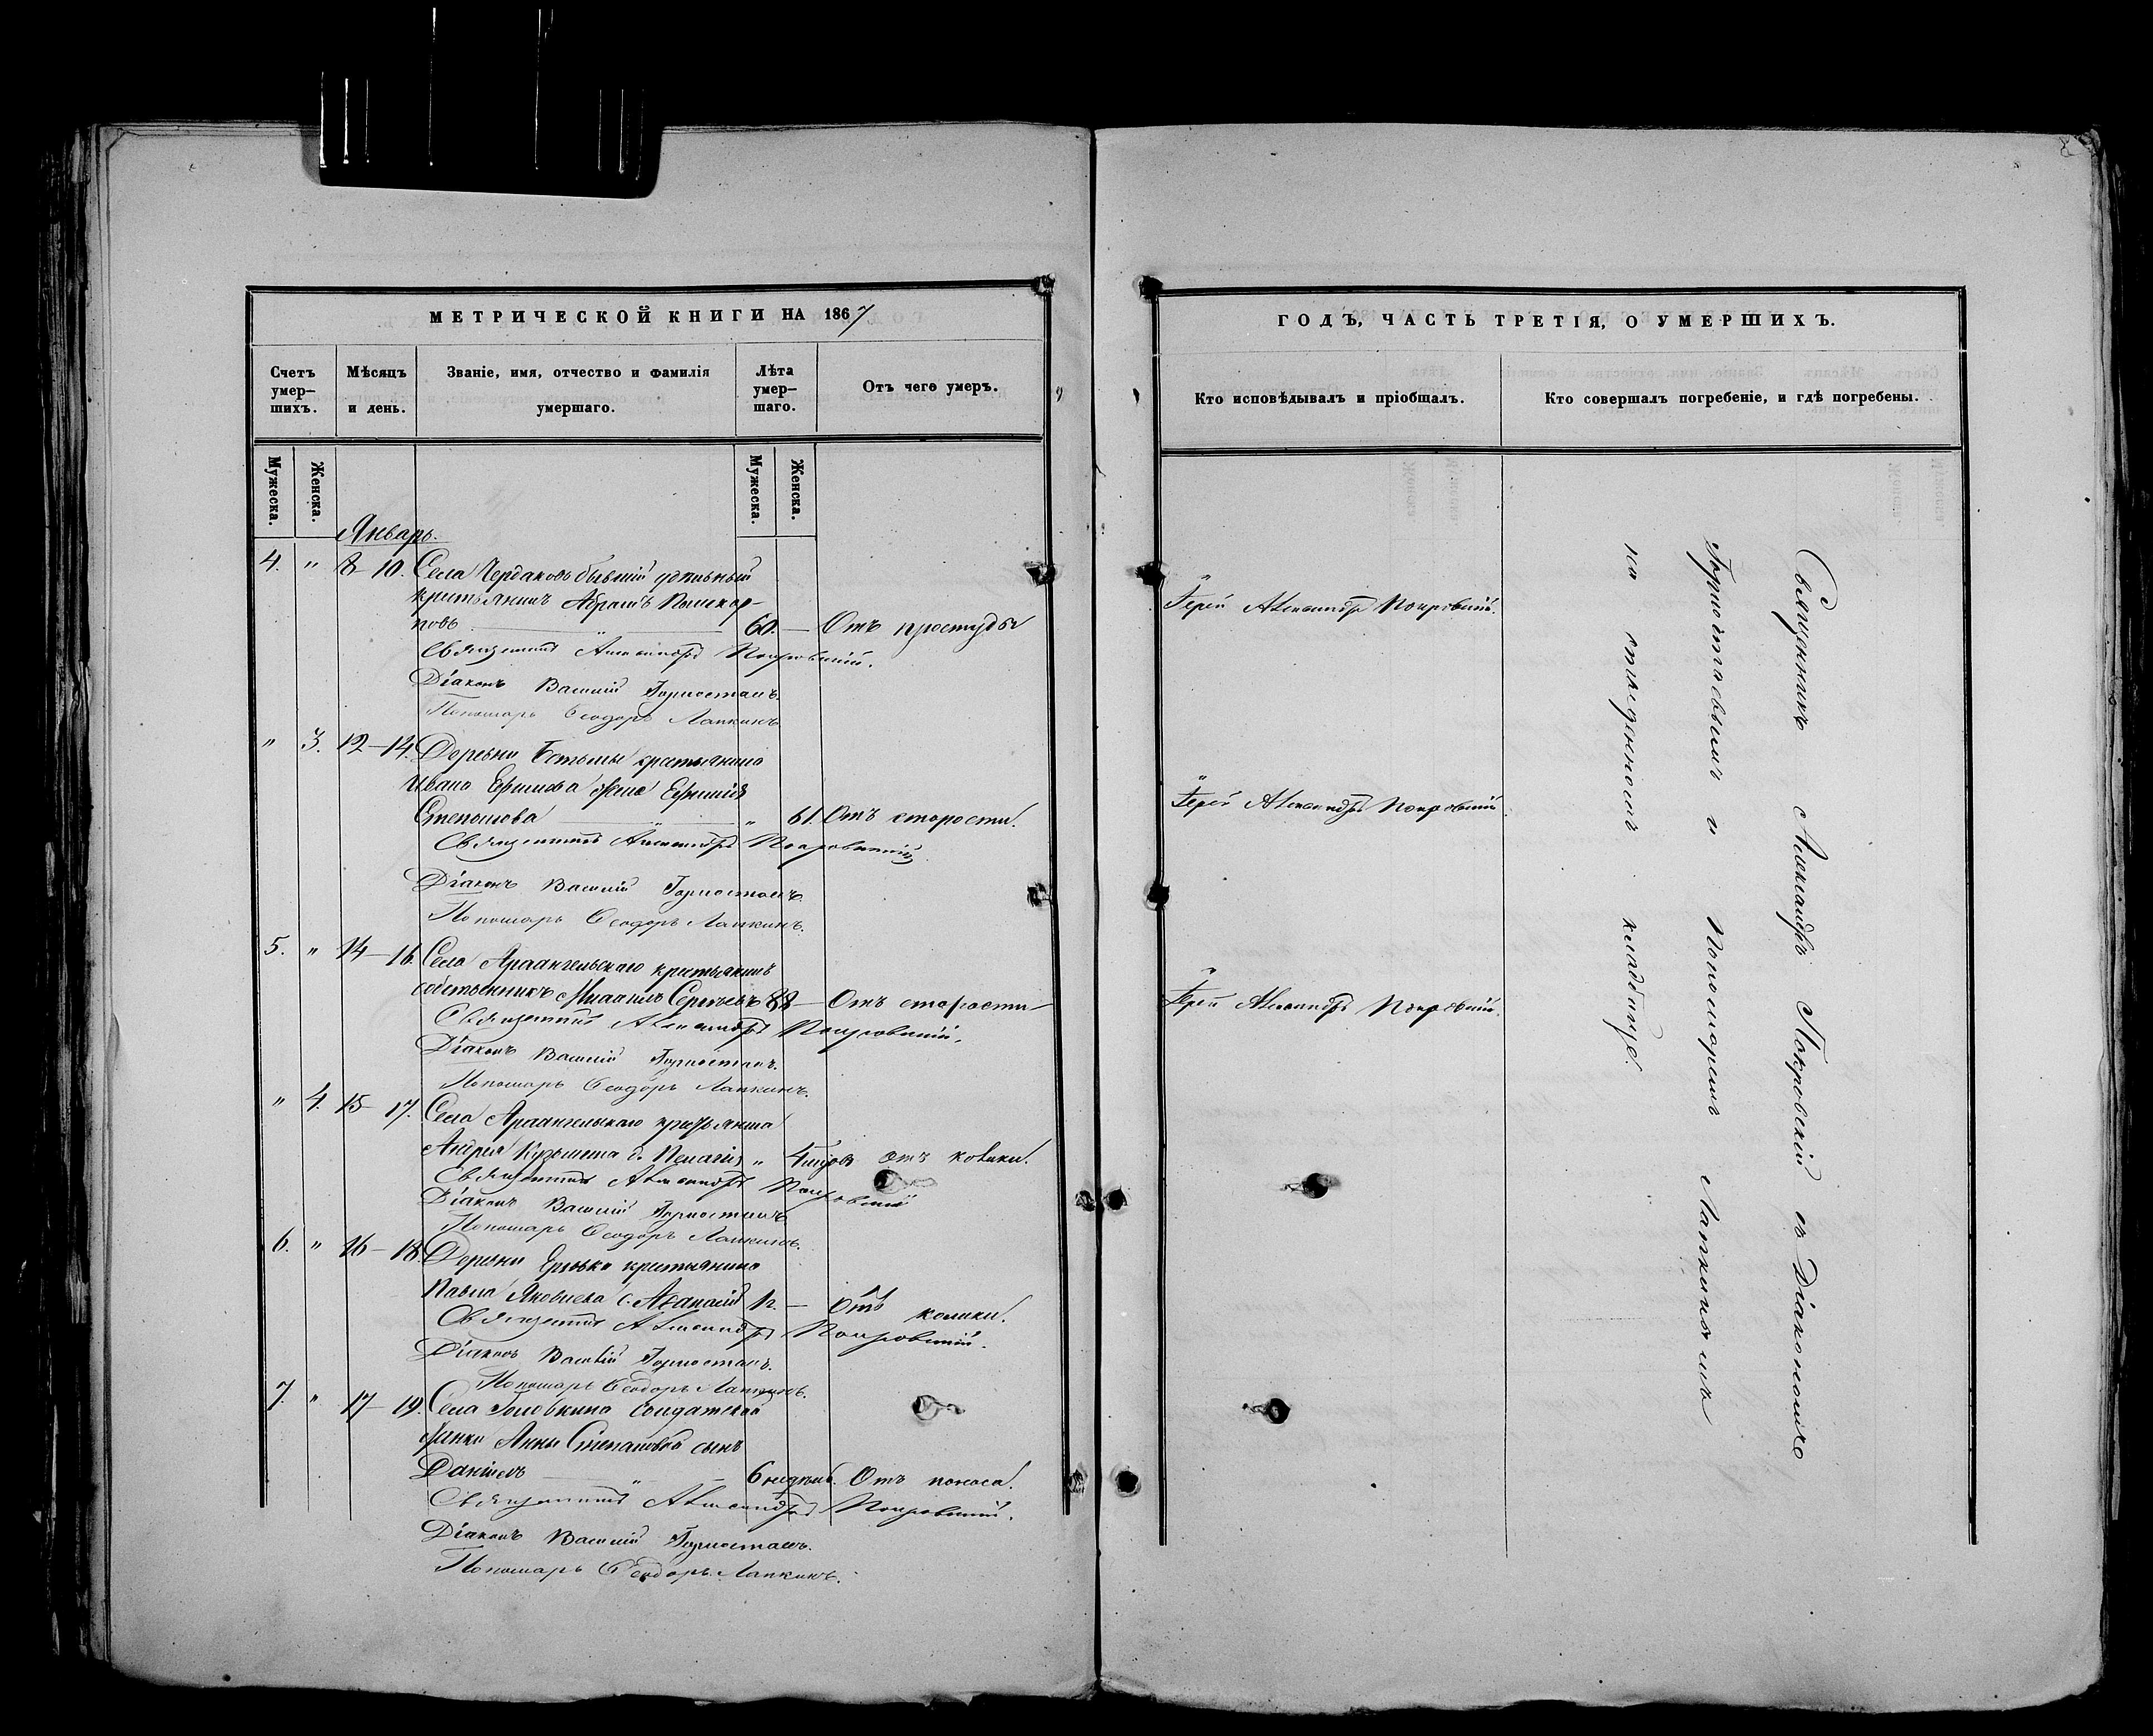 МЕТРИЧЕСКОЙ КНИГИ НА 1867
Счетъ умер-шихъ.
Мѣсяцъ и день.
Званіе, имя, отчество и фамилія умершаго.
Лѣта умер-шаго.
Отъ чего умеръ.
Мужеска.
Женска.
Мужеска.
Женска.
Январь.
4. " 8-10. Села Чердаковъ бывшій удѣльный
крестьянинъ Абрамъ
новъ — " — 60. — Отъ простуды
Священникъ Александръ Покровскій.
Діаконъ Василій Горностаевъ.
Пономарь Ѳеодоръ Лапкинъ.
" 3. 12-14. Деревни крестьянина
Ивана Ефимова жена Евфимія
Степанова — " — " 61. Отъ старости.
Священникъ Александръ Покровскій
Діаконъ Василій Горностаевъ.
Пономарь Ѳеодоръ Лапкинъ.
5. " 14-16. Села Архангельскаго крестьянинъ
собственникъ Михаилъ Сергѣевъ 88 — Отъ старости
Священникъ Александръ Покровскій.
Діаконъ Василій Горностаевъ.
Пономарь Ѳеодоръ Лапкинъ.
" 4. 15-17. Села Архангельскаго крестьянина
Андрея д. Пелагія " 4 отъ колики.
Священникъ Александръ Покровскій
Діаконъ Василій Горностаевъ
Пономарь Ѳеодоръ Лапкинъ.
6. " 16-18. Деревни крестьянина
Павла Яковлева с. Аѳанасій — Отъ колики.
Священникъ Александръ Покровскій.
Діаконъ Василій Горностаевъ.
Пономарь Ѳеодоръ Лапкинъ.
7. " 17-19. Села Головкина солдатской
женки Анны Степановой сынъ
Даніилъ — " — 6 недѣль. Отъ поноса.
Священникъ Александръ Покровскій.
Діаконъ Василій Горностаевъ.
Пономарь Ѳеодоръ Лапкинъ.
ГОДЪ, ЧАСТЬ ТРЕТІЯ, О УМЕРШИХЪ.
Кто исповѣдывалъ и пріобщалъ.
Кто совершалъ погребеніе, и гдѣ погребены.
Іерей Александръ Покровскій.
Іерей Александръ Покровскій.
Іерей Александръ Покровскій.
Священникъ Александръ Покровскій съ Діакономъ
Горностаевымъ и Пономаремъ Лапкинымъ
на кладбищѣ.